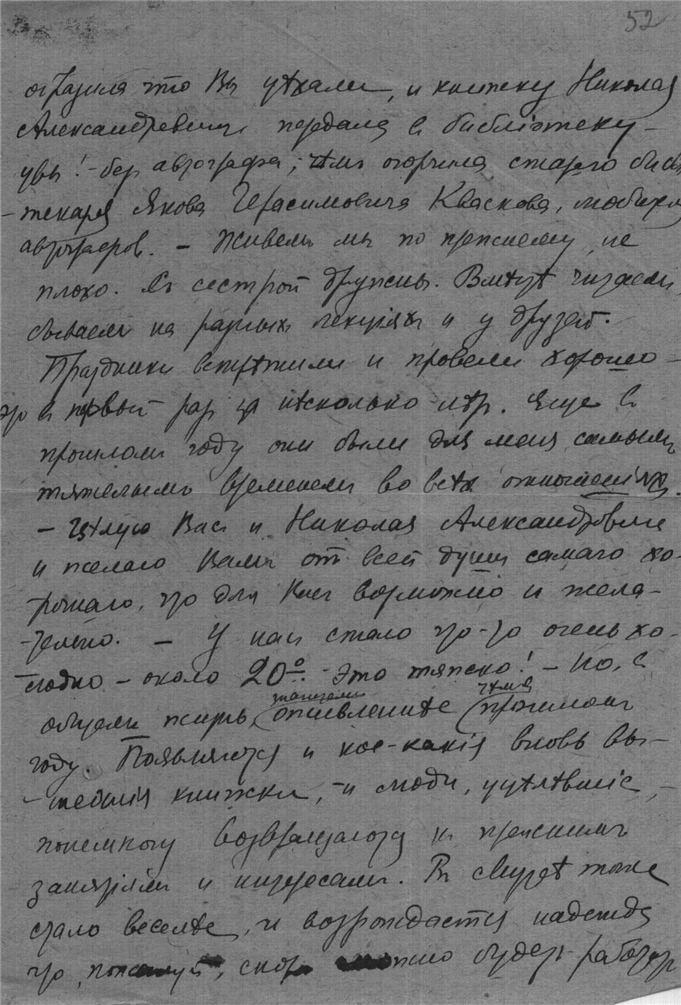 52
что Вы уѣхали, и книжку Николая
Александровича передала в библіотеку –
увы! – без автографа; чѣмъ огорчила стараго библіо-
– текаря Якова Герасимовича Кваскова, любителя
автографов. – Живемъ мы по прежнему, не
плохо. Съ сестрой дружны. Вмѣстѣ читаемъ,
бываем на разныхъ лекціях и у друзей.
Праздники встрѣтили и провели хорошо –
это в первый раз за нѣсколько лѣт. Еще в
прошлом году они были для меня самымъ
тяжелымъ временем во всѣх отношеніях.
– Цѣлую Вас и Николая Александровича
и желаю Вамъ от всей души самаго хо-
рошаго, что для Вас возможно и жела-
-тельно. – У нас стало что-то очень хо-
лодно – около 20°. Это тяжко! – Но, в
общем жизнь значительно оживленнѣе чѣм в прошлом
году. Появляются и кое-какія вновь вы-
-шедшія книжки, – и люди, уцѣлѣвшіе, –
понемногу возвращаются к прежнимъ
занятіям и интересам. Въ стало веселѣе, и возрождается надежда
что, пожалуй, скоро можно будет работать